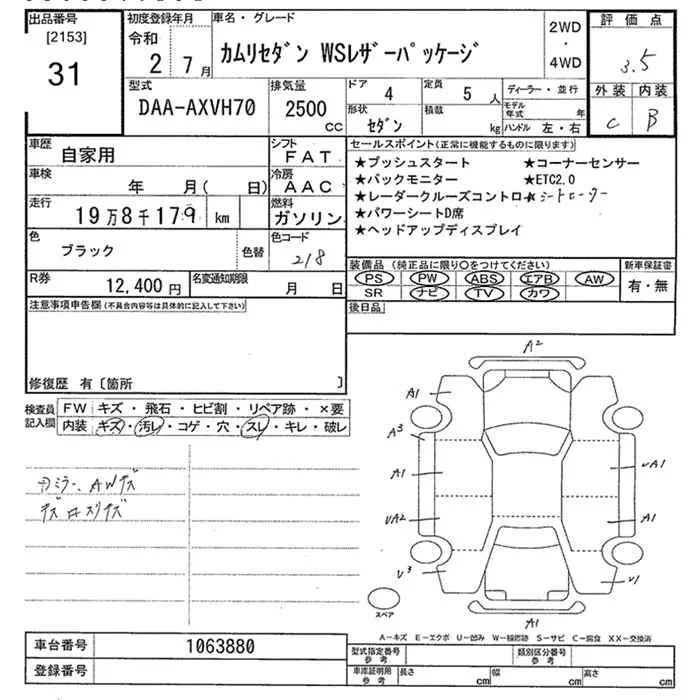 出品番号
[2153]
31
初度登録年月
令和
2年 7月
車名・グレード
カムリセダン WSレザーパッケージ
2WD
・
4WD
評価点
3.5
外装 内装
C B
型式
DAA-AXVH70
排気量
2500
CC
ドア
4
定員
5 人
形状
セダン
積載
kg
ディーラー・並行
モデル年式 年
ハンドル 左・右
車歴
自家用
シフト
FAT
車検
年 月( 日)
冷房
AAC
走行
19万8千179 km
燃料
ガソリン
色
ブラック
色替
色コード
218
R券
12,400円
名変通知期限
月 日
セールスポイント(正常に機能するものに限ります)
★プッシュスタート ★コーナーセンサー
★バックモニター ★ETC2.0
★レーダークルーズコントロ★シートヒーター
★パワーシートD席
★ヘッドアップディスプレイ
装備品 (純正品に限り○をつけてください)
PS PW ABS エアB AW
SR ナビ TV カワ
新車保証書
有・無
後日品
注意事項申告欄(不具合内容等は具体的に記入して下さい)
修復歴 有〔箇所 〕
検査員記入欄
FW キズ・飛石・ヒビ割・リペア跡・×要
内装 キズ・汚レ・コゲ・穴・スレ・キレ・破レ
A2
A1
A3
A1
UA1
UA2
A1
U3
U1
A1
スペア
A−キズ E−エクボ U−凹み W−補修跡 S−サビ C−腐食 XX−交換済
車台番号
1063880
登録番号
型式指定番号
参考
類別区分番号
参考
車庫証明用
参考
長さ cm
幅 cm
高さ cm